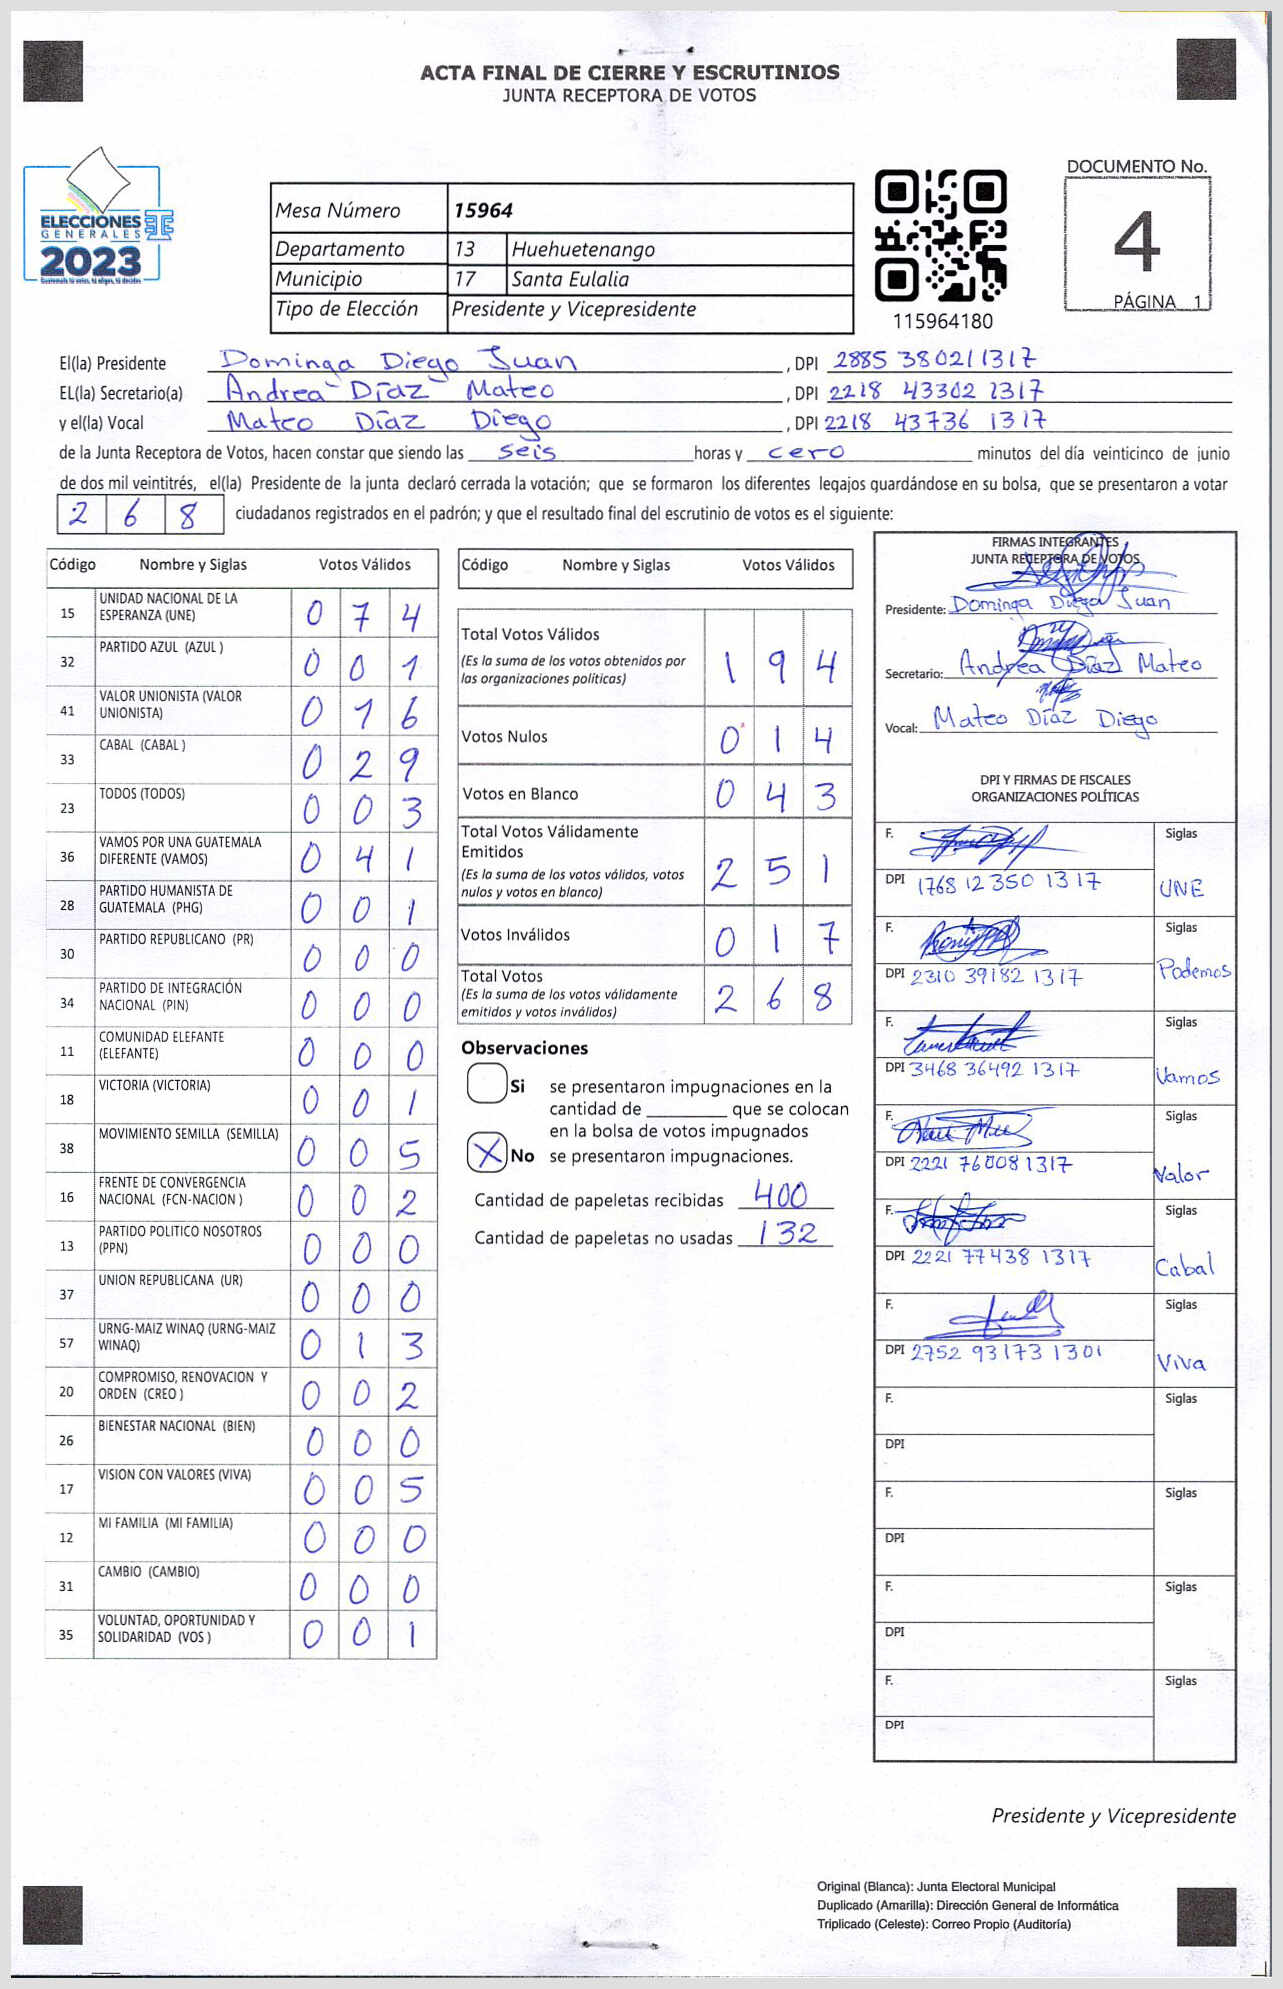 ACTA FINAL DE CIERRE Y ESCRUTINIOS
JUNTA RECEPTORA DE VOTOS
ELECCIONES
GENERALES
2023
Guatemala tú votas, tú eliges, tú decides
Mesa Número 15964
Departamento 13 Huehuetenango
Municipio 17 Santa Eulalia
Tipo de Elección Presidente y Vicepresidente
115964180
DOCUMENTO No.
4
PÁGINA 1
El(la) Presidente Dominga Diego Juan , DPI 2885 38021 1317
EL(la) Secretario(a) Andrea Díaz Mateo , DPI 2218 43302 1317
y el(la) Vocal Mateo Díaz Diego , DPI 2218 43736 1317
de la Junta Receptora de Votos, hacen constar que siendo las seis horas y cero minutos del día veinticinco de junio
de dos mil veintitrés, el(la) Presidente de la junta declaró cerrada la votación; que se formaron los diferentes legajos guardándose en su bolsa, que se presentaron a votar
2 6 8 ciudadanos registrados en el padrón; y que el resultado final del escrutinio de votos es el siguiente:
Código Nombre y Siglas Votos Válidos
15 UNIDAD NACIONAL DE LA
ESPERANZA (UNE) 0 7 4
32 PARTIDO AZUL (AZUL ) 0 0 1
41 VALOR UNIONISTA (VALOR
UNIONISTA) 0 1 6
33 CABAL (CABAL ) 0 2 9
23 TODOS (TODOS) 0 0 3
36 VAMOS POR UNA GUATEMALA
DIFERENTE (VAMOS) 0 4 1
28 PARTIDO HUMANISTA DE
GUATEMALA (PHG) 0 0 1
30 PARTIDO REPUBLICANO (PR) 0 0 0
34 PARTIDO DE INTEGRACIÓN
NACIONAL (PIN) 0 0 0
11 COMUNIDAD ELEFANTE
(ELEFANTE) 0 0 0
18 VICTORIA (VICTORIA) 0 0 1
38 MOVIMIENTO SEMILLA (SEMILLA) 0 0 5
16 FRENTE DE CONVERGENCIA
NACIONAL (FCN-NACION ) 0 0 2
13 PARTIDO POLITICO NOSOTROS
(PPN) 0 0 0
37 UNION REPUBLICANA (UR) 0 0 0
57 URNG-MAIZ WINAQ (URNG-MAIZ
WINAQ) 0 1 3
20 COMPROMISO, RENOVACION Y
ORDEN (CREO ) 0 0 2
26 BIENESTAR NACIONAL (BIEN) 0 0 0
17 VISION CON VALORES (VIVA) 0 0 5
12 MI FAMILIA (MI FAMILIA) 0 0 0
31 CAMBIO (CAMBIO) 0 0 0
35 VOLUNTAD, OPORTUNIDAD Y
SOLIDARIDAD (VOS ) 0 0 1
Código Nombre y Siglas Votos Válidos
Total Votos Válidos
(Es la suma de los votos obtenidos por
las organizaciones políticas) 1 9 4
Votos Nulos 0 1 4
Votos en Blanco 0 4 3
Total Votos Válidamente
Emitidos
(Es la suma de los votos válidos, votos
nulos y votos en blanco) 2 5 1
Votos Inválidos 0 1 7
Total Votos
(Es la suma de los votos válidamente
emitidos y votos inválidos) 2 6 8
Observaciones
Si se presentaron impugnaciones en la
cantidad de ________ que se colocan
en la bolsa de votos impugnados
X No se presentaron impugnaciones.
Cantidad de papeletas recibidas 400
Cantidad de papeletas no usadas 132
FIRMAS INTEGRANTES
JUNTA RECEPTORA DE VOTOS
Presidente: Dominga Diego Juan
Secretario: Andrea Díaz Mateo
Vocal: Mateo Díaz Diego
DPI Y FIRMAS DE FISCALES
ORGANIZACIONES POLÍTICAS
F. Siglas
DPI 1768 12 350 1317 UNE
F. Siglas
DPI 2310 39182 1317 Podemos
F. Siglas
DPI 3468 36492 1317 Vamos
F. Siglas
DPI 2221 76008 1317 Valor
F. Siglas
DPI 2221 77438 1317 Cabal
F. Siglas
DPI 2752 93173 1301 Viva
F. Siglas
DPI
F. Siglas
DPI
F. Siglas
DPI
F. Siglas
DPI
Presidente y Vicepresidente
Original (Blanca): Junta Electoral Municipal
Duplicado (Amarilla): Dirección General de Informática
Triplicado (Celeste): Correo Propio (Auditoría)